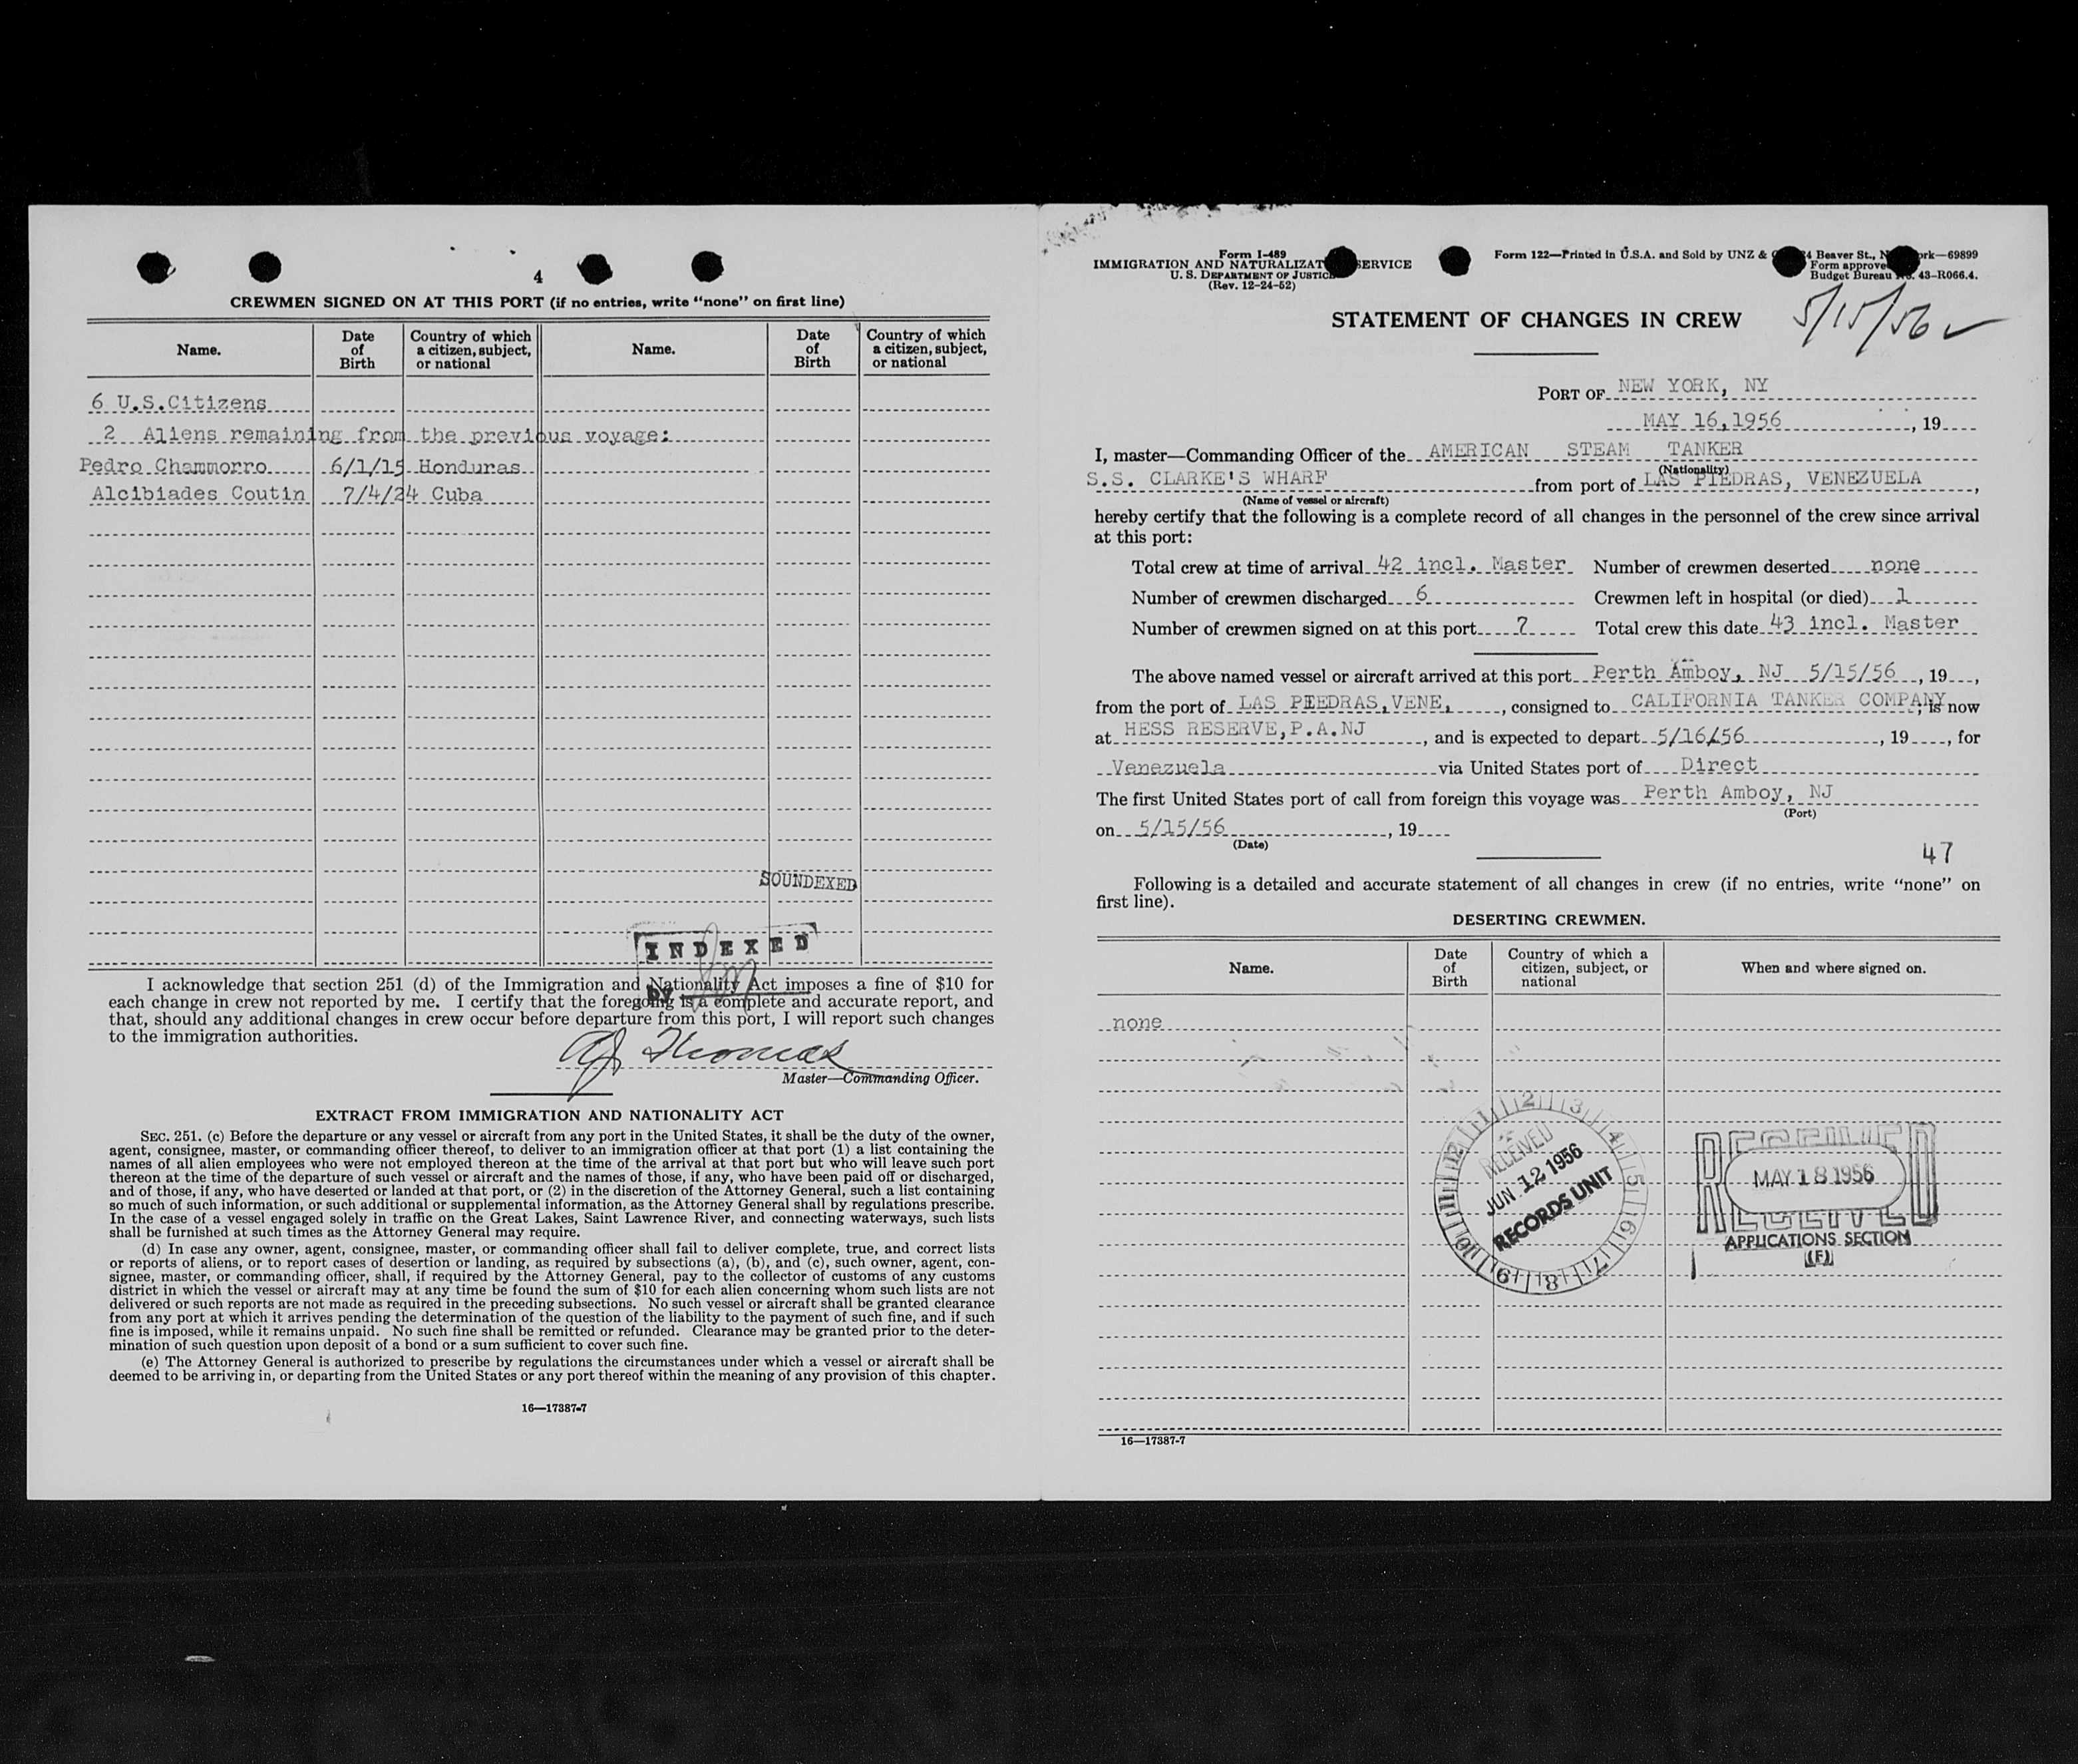 4
CREWMEN SIGNED ON AT THIS PORT (if no entries, write “none” on first line)
Name. Date of Birth Country of which a citizen, subject, or national Name. Date of Birth Country of which a citizen, subject, or national
6 U.S.Citizens
2 Aliens remaining from the previous voyage:
Pedro Chammorro 6/1/15 Honduras
Alcibiades Coutin 7/4/24 Cuba
SOUNDEXED
INDEXED
by
I acknowledge that section 251 (d) of the Immigration and Nationality Act imposes a fine of $10 for
each change in crew not reported by me. I certify that the foregoing is a complete and accurate report, and
that, should any additional changes in crew occur before departure from this port, I will report such changes
to the immigration authorities.
Thomas
Master—Commanding Officer.
EXTRACT FROM IMMIGRATION AND NATIONALITY ACT
SEC. 251. (c) Before the departure or any vessel or aircraft from any port in the United States, it shall be the duty of the owner,
agent, consignee, master, or commanding officer thereof, to deliver to an immigration officer at that port (1) a list containing the
names of all alien employees who were not employed thereon at the time of the arrival at that port but who will leave such port
thereon at the time of the departure of such vessel or aircraft and the names of those, if any, who have been paid off or discharged,
and of those, if any, who have deserted or landed at that port, or (2) in the discretion of the Attorney General, such a list containing
so much of such information, or such additional or supplemental information, as the Attorney General shall by regulations prescribe.
In the case of a vessel engaged solely in traffic on the Great Lakes, Saint Lawrence River, and connecting waterways, such lists
shall be furnished at such times as the Attorney General may require.
(d) In case any owner, agent, consignee, master, or commanding officer shall fail to deliver complete, true, and correct lists
or reports of aliens, or to report cases of desertion or landing, as required by subsections (a), (b), and (c), such owner, agent, con-
signee, master, or commanding officer, shall, if required by the Attorney General, pay to the collector of customs of any customs
district in which the vessel or aircraft may at any time be found the sum of $10 for each alien concerning whom such lists are not
delivered or such reports are not made as required in the preceding subsections. No such vessel or aircraft shall be granted clearance
from any port at which it arrives pending the determination of the question of the liability to the payment of such fine, and if such
fine is imposed, while it remains unpaid. No such fine shall be remitted or refunded. Clearance may be granted prior to the deter-
mination of such question upon deposit of a bond or a sum sufficient to cover such fine.
(e) The Attorney General is authorized to prescribe by regulations the circumstances under which a vessel or aircraft shall be
deemed to be arriving in, or departing from the United States or any port thereof within the meaning of any provision of this chapter.
16—17387-7
Form I-489
IMMIGRATION AND NATURALIZAT SERVICE
U. S. DEPARTMENT OF JUSTICE
(Rev. 12-24-52)
Form 122—Printed in U.S.A. and Sold by UNZ & 4 Beaver St., N ork—69899
Form approve
Budget Bureau No. 43-R066.4.
5/15/56 ✓
STATEMENT OF CHANGES IN CREW
PORT OF NEW YORK, NY
MAY 16,1956, 19
I, master—Commanding Officer of the AMERICAN STEAM TANKER
(Nationality)
S.S. CLARKE'S WHARF from port of LAS PIEDRAS, VENEZUELA,
(Name of vessel or aircraft)
hereby certify that the following is a complete record of all changes in the personnel of the crew since arrival
at this port:
Total crew at time of arrival 42 incl. Master Number of crewmen deserted none
Number of crewmen discharged 6 Crewmen left in hospital (or died) 1
Number of crewmen signed on at this port 7 Total crew this date 43 incl. Master
The above named vessel or aircraft arrived at this port Perth Amboy, NJ 5/15/56, 19,
from the port of LAS PIEDRAS,VENE, , consigned to CALIFORNIA TANKER COMPANY, is now
at HESS RESERVE,P.A.NJ, and is expected to depart 5/16/56, 19, for
Venezuela via United States port of Direct
The first United States port of call from foreign this voyage was Perth Amboy, NJ
(Port)
on 5/15/56, 19
(Date)
47
Following is a detailed and accurate statement of all changes in crew (if no entries, write “none” on
first line).
DESERTING CREWMEN.
Name. Date of Birth Country of which a citizen, subject, or national When and where signed on.
none
1 2 3 4 5 6 7 8 9 10 11 12
RECEIVED
JUN 12 1956
RECORDS UNIT
RECEIVED
MAY 18 1956
RECEIVED
APPLICATIONS SECTION
(F)
16—17387-7